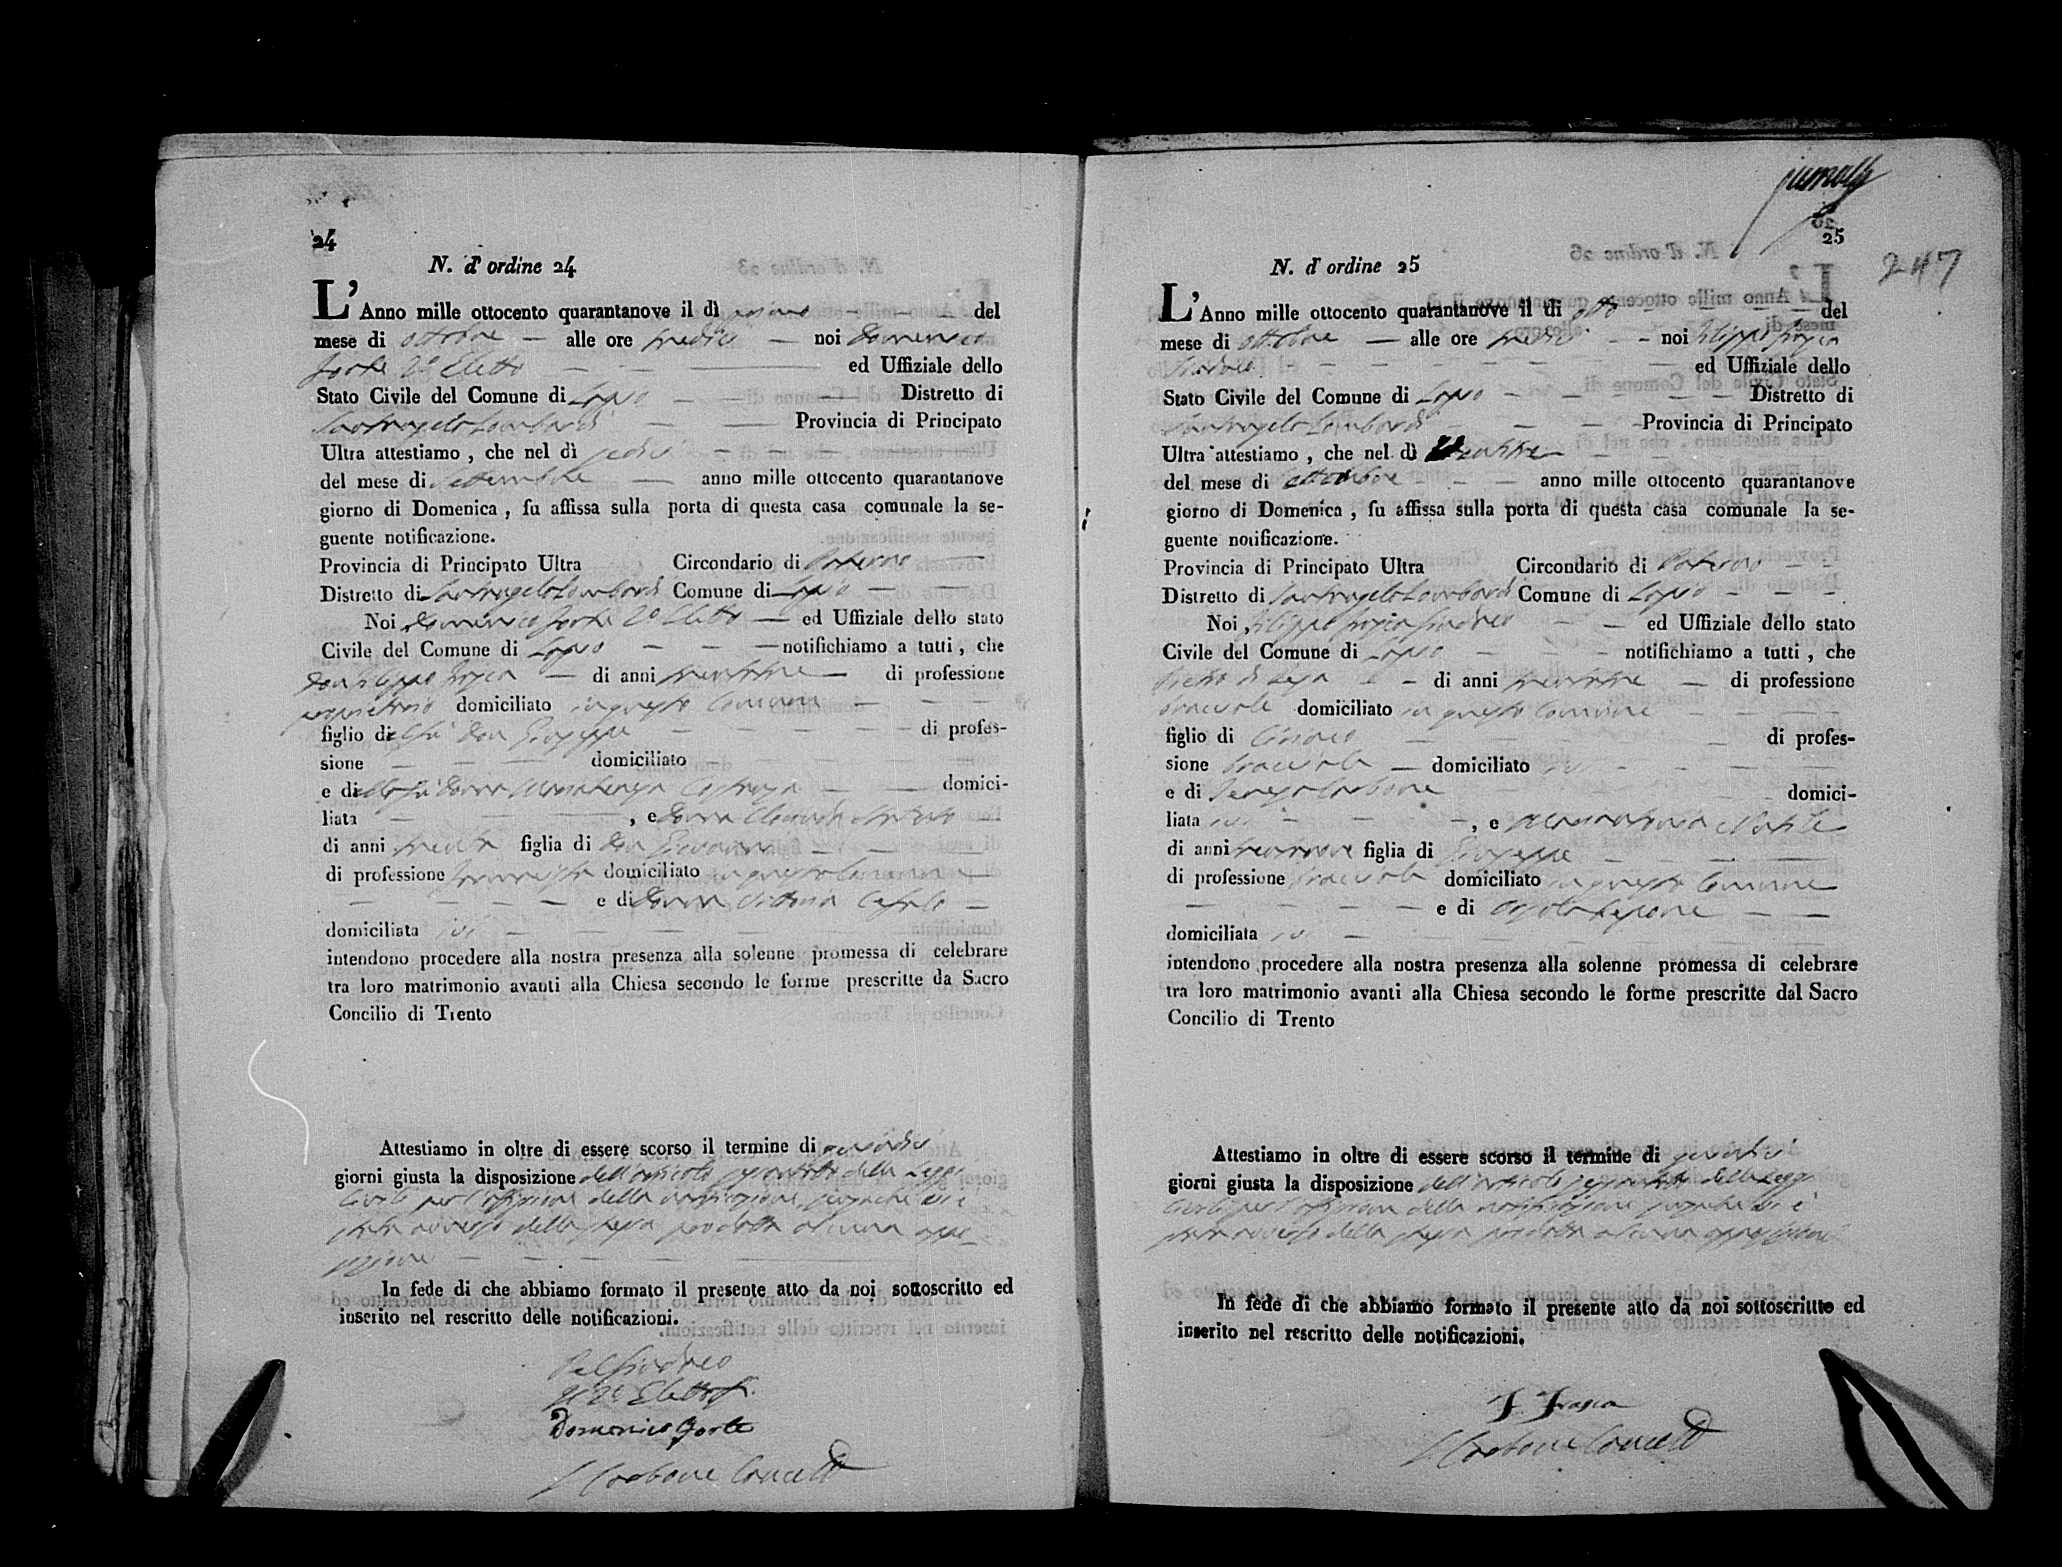 24
N. d' ordine 24
L' Anno mille ottocento quarantanove il dì primo del
mese di ottobre alle ore tredici noi Domenico
Forte 2º Eletto ed Uffiziale dello
Stato Civile del Comune di Lapio Distretto di
Santangelo Lombardi Provincia di Principato
Ultra attestiamo, che nel dì sedici
del mese di Settembre anno mille ottocento quarantanove
giorno di Domenica, fu affissa sulla porta di questa casa comunale la se-
guente notificazione.
Provincia di Principato Ultra Circondario di Paterno
Distretto di Santangelo Lombardi Comune di Lapio
Noi Domenico Forte 2º Eletto ed Uffiziale dello stato
Civile del Comune di Lapio notifichiamo a tutti, che
Don Filippo Frasca di anni di professione
proprietario domiciliato in questo Comune
figlio di del fu Don Giuseppe di profes-
sione domiciliato
e di della fu Donna domici-
liata , e Donna
di anni trenta figlia di Don Giovanni
di professione domiciliato in questo Comune
e di Donna Vittoria
domiciliata ivi
intendono procedere alla nostra presenza alla solenne promessa di celebrare
tra loro matrimonio avanti alla Chiesa secondo le forme prescritte da Sacro
Concilio di Trento
Attestiamo in oltre di essere scorso il termine di quindici
giorni giusta la disposizione dell'articolo sessantotto delle Leggi
Civili per l'affissione della notificazione, giacché vi è
stata avverso della stessa prodotta alcuna oppo-
sizione
In fede di che abbiamo formato il presente atto da noi sottoscritto ed
inserito nel rescritto delle notificazioni.
Pel Sindaco
Il 2º Eletto
Domenico Forte
Carbone Cancell
25
247
N. d' ordine 25
L' Anno mille ottocento quarantanove il dì otto del
mese di ottobre alle ore tredici noi Filippo Frasca
Sindaco ed Uffiziale dello
Stato Civile del Comune di Lapio Distretto di
Santangelo Lombardi Provincia di Principato
Ultra attestiamo, che nel dì ventitre
del mese di Settembre anno mille ottocento quarantanove
giorno di Domenica, fu affissa sulla porta di questa casa comunale la se-
guente notificazione.
Provincia di Principato Ultra Circondario di Paterno
Distretto di Santangelo Lombardi Comune di Lapio
Noi, Filippo Frasca Sindaco ed Uffiziale dello stato
Civile del Comune di Lapio notifichiamo a tutti, che
di anni di professione
bracciale domiciliato in questo Comune
figlio di Ciriaco di profes-
sione bracciale domiciliato ivi
e di Teresa Carbone domici-
liata ivi , e Mariantonia
di anni figlia di Giuseppe
di professione bracciale domiciliato in questo Comune
e di
domiciliata ivi
intendono procedere alla nostra presenza alla solenne promessa di celebrare
tra loro matrimonio avanti alla Chiesa secondo le forme prescritte dal Sacro
Concilio di Trento
Attestiamo in oltre di essere scorso il termine di quindici
giorni giusta la disposizione dell'articolo sessantotto delle Leggi
Civili per l'affissione della notificazione giacché vi è
stata avverso della stessa prodotta alcuna opposizione
In fede di che abbiamo formato il presente atto da noi sottoscritto ed
inserito nel rescritto delle notificazioni.
F. Frasca
Carbone Cancell